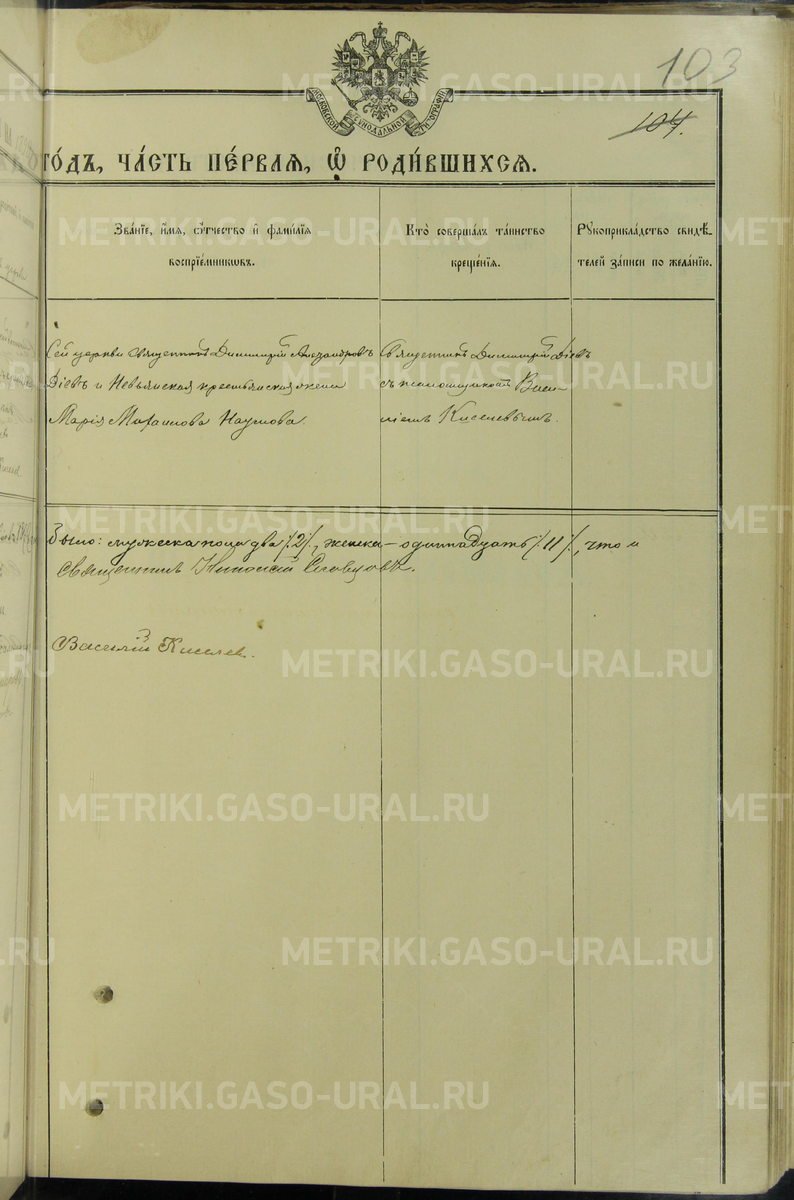 103
104.
МОСКОВСКОЙ СѴНОДАЛЬНОЙ ТИПОГРАФІИ
го́дъ, ча́сть пе́рваѧ, ѡ҆ роди́вшихсѧ.
Зва́нїе, и҆́мѧ, ѻ҆́тчество и҆ фами́лїѧ
воспрїе́мникѡвъ.
Кто̀ соверша́лъ та́инство
креще́нїѧ.
Рꙋкоприкла́дство свидѣ́-
телей за́писи по жела́нїю.
Сей церкви священникъ Димитрій Александровъ
Діевъ и Невьянская крестьянская жена
Марія Наумова.
Священникъ Димитрій Діевъ
съ псаломщикомъ Васи-
ліемъ Киселевымъ.
было: мужеска пола два /2/, женска – одиннадцать /11/, что и
Священникъ Николай Словцовъ.
Василій Киселев.
METRIKI.GASO-URAL.RU